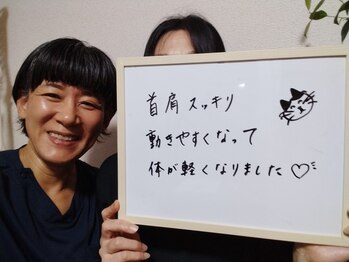 首肩スッキリ
動きやすくなって
体が軽くなりました♡